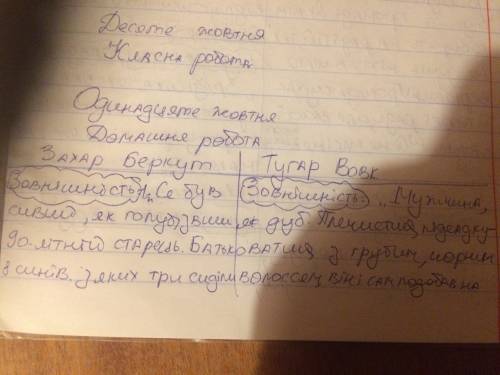 Десяте жовтня
Класна робота
Одинадцяте жовтня
Домашня робота
Захар Беркут Тугар Вовк
Зовнішність: „Се був Зовнішність: „Мужчина,
сивий, як голуб, звиш як дуб. Плечистий, підсадку-
90-літній старець. Батько ватий, з грубим, чорним
8 синів. з яких три сидім волоссям, він і сам подобав на